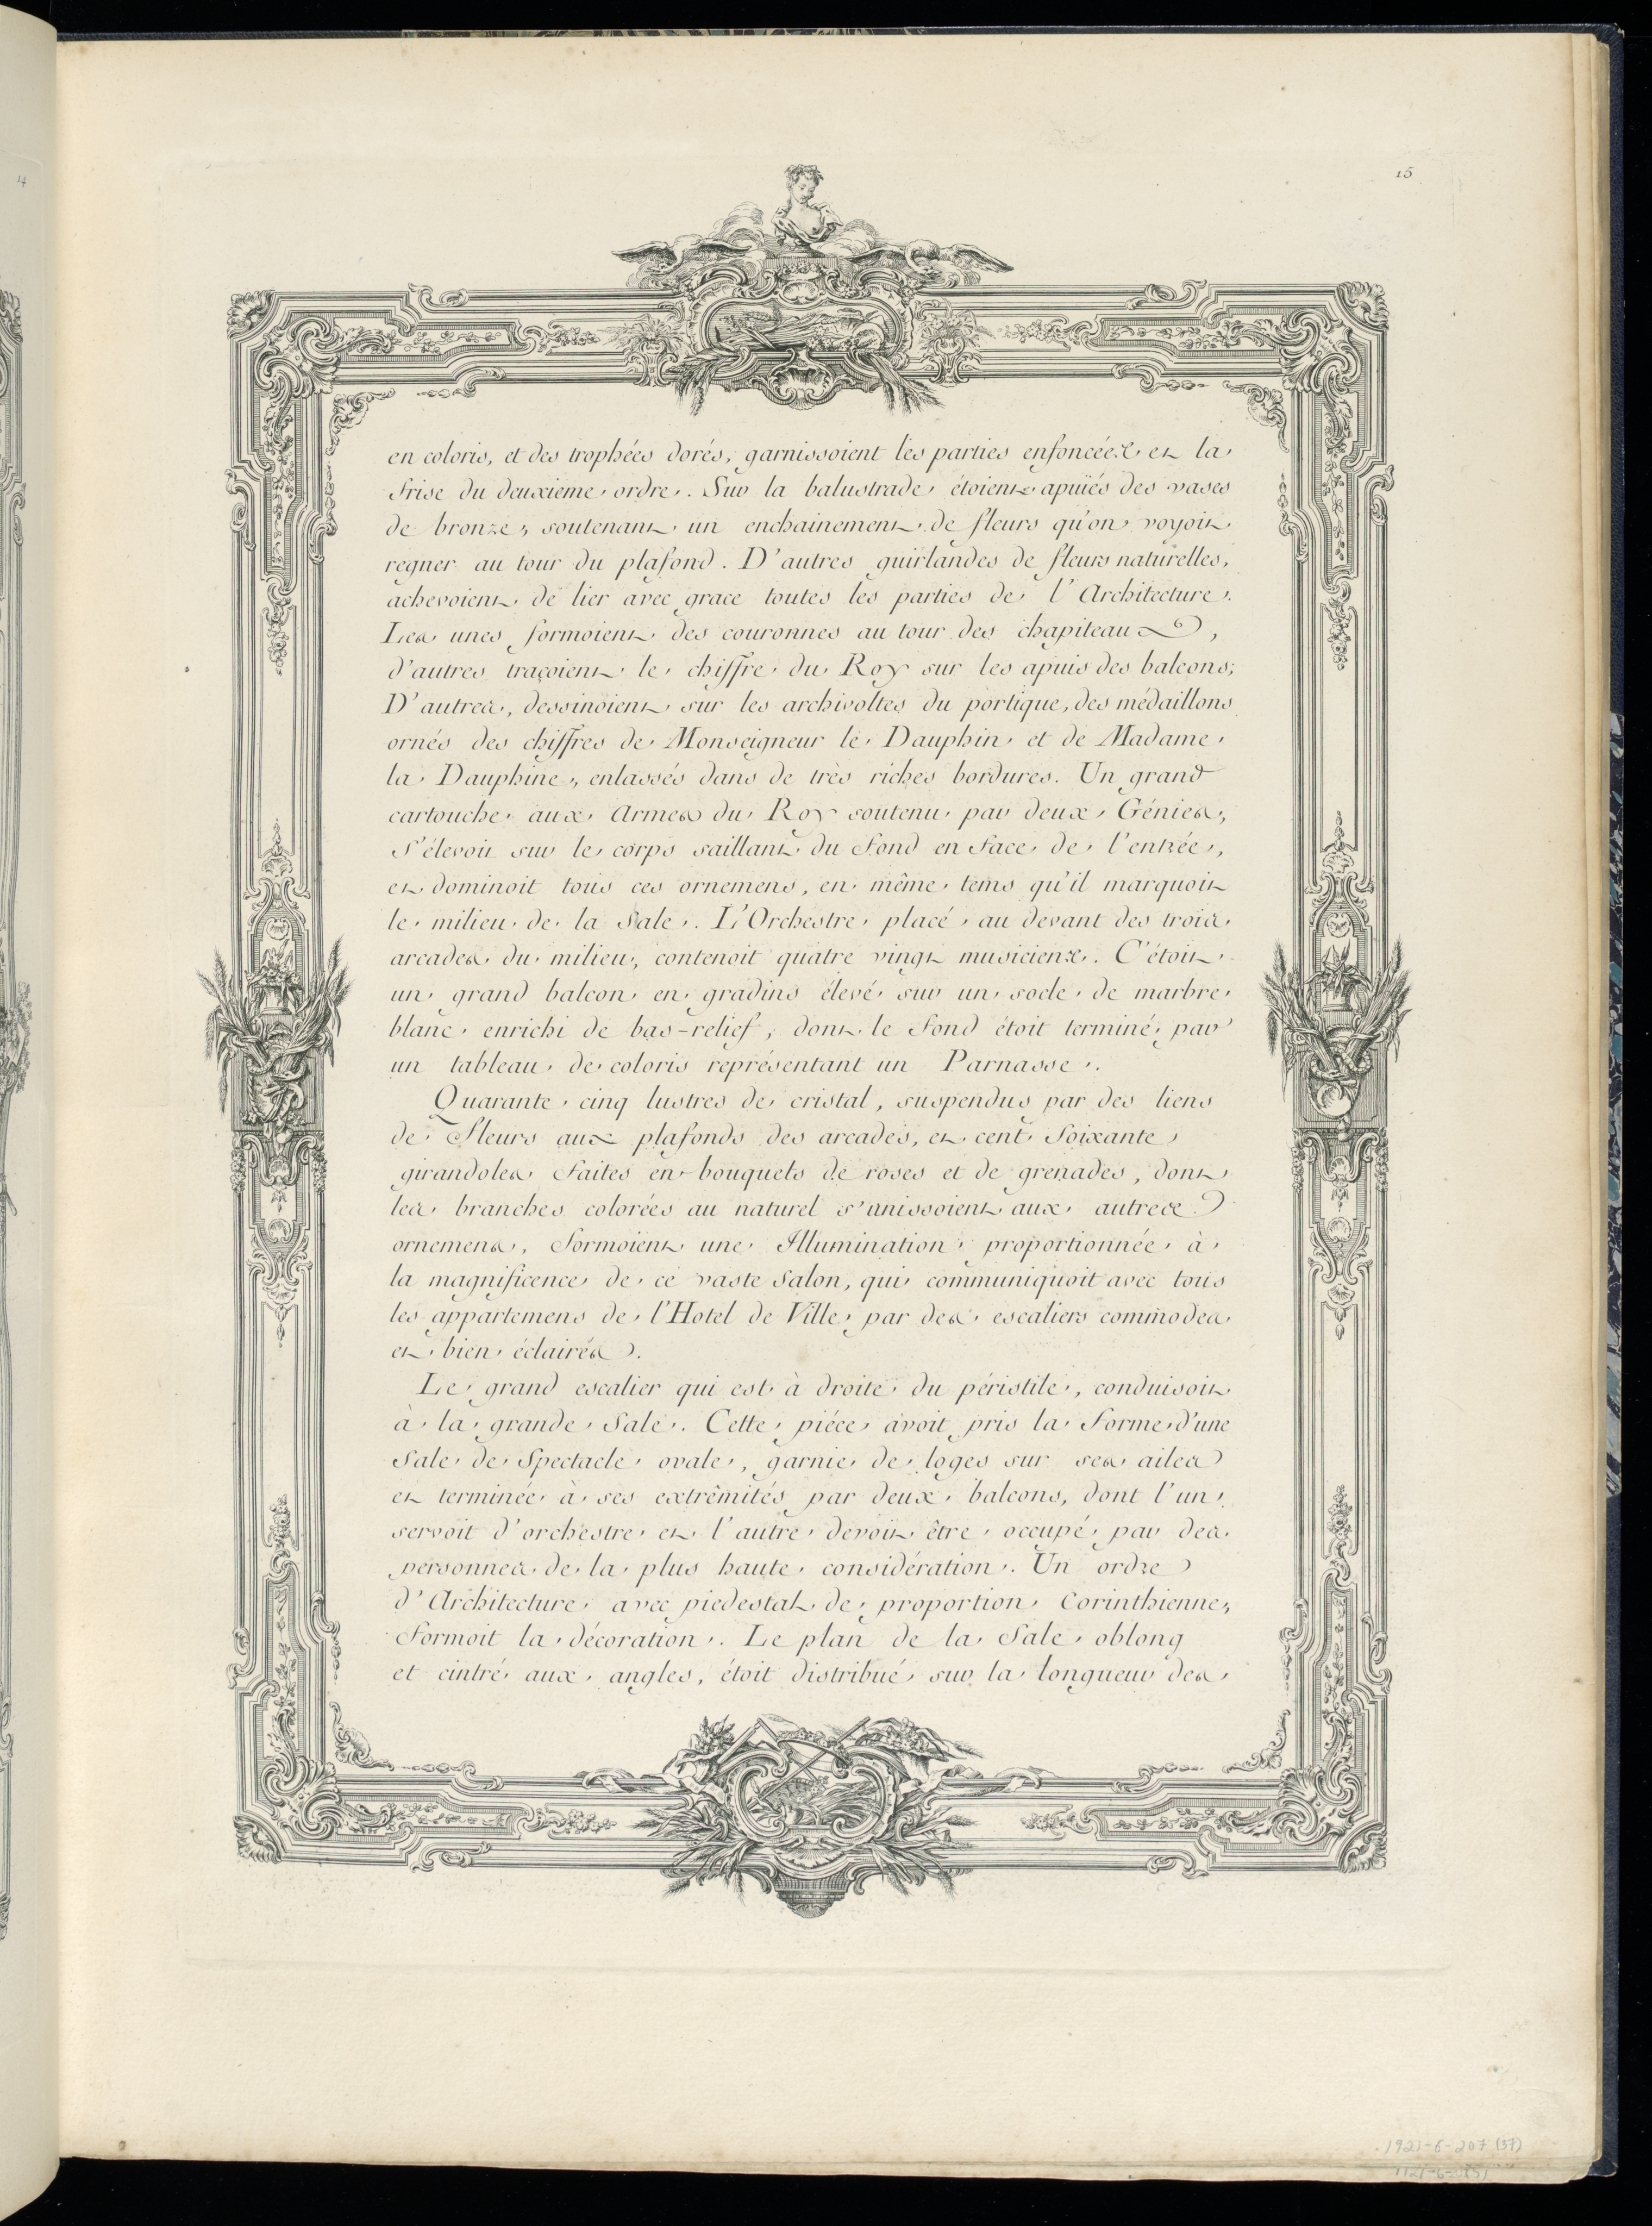 14
15
en coloris, et des trophées dorés, garnissoient les parties enfoncées et la
frise du deuxième ordre. Sur la balustrade étoient apuiés des vases
de bronze, soutenant un enchainement de fleurs qu'on voyoit
regner au tour du plafond. D'autres guirlandes de fleurs naturelles,
achevoient de lier avec grace toutes les parties de l'Architecture.
Les unes formoient des couronnes au tour des chapiteaux,
d'autres traçoient le chiffre du Roy sur les apuis des balcons;
D'autres, dessinoient sur les archivoltes du portique, des médaillons
ornés des chiffres de Monseigneur le Dauphin et de Madame
la Dauphine, enlassés dans de très riches bordures. Un grand
cartouche aux Armes du Roy soutenu par deux Génies,
s'élevoit sur le corps saillant du fond en face de l'entrée,
et dominoit tous ces ornemens, en même tems qu'il marquoit
le milieu de la Sale. L'Orchestre placé au devant des trois
arcades du milieu, contenoit quatre vingt musiciens. C'étoit
un grand balcon en gradins élevé sur un socle de marbre
blanc enrichi de bas-relief, dont le fond étoit terminé par
un tableau de coloris représentant un Parnasse.
Quarante cinq lustres de cristal, suspendus par des liens
de fleurs aux plafonds des arcades, et cent soixante
girandoles faites en bouquets de roses et de grenades, dont
les branches colorées au naturel s'unissoient aux autres
ornemens, formoient une Illumination proportionnée à
la magnificence de ce vaste Salon, qui communiquoit avec tous
les appartemens de l'Hotel de Ville par des escaliers commodes
et bien éclairés.
Le grand escalier qui est à droite du péristile, conduisoit
à la grande Sale. Cette piéce avoit pris la forme d'une
Sale de Spectacle ovale, garnie de loges sur ses ailes
et terminée à ses extrêmités par deux balcons, dont l'un
servoit d'orchestre et l'autre devoit être occupé par des
personnes de la plus haute considération. Un ordre
d'Architecture avec piedestal de proportion Corinthienne,
formoit la décoration. Le plan de la Sale oblong
et cintré aux angles, étoit distribué sur la longueur des
1921-6-207 (37)